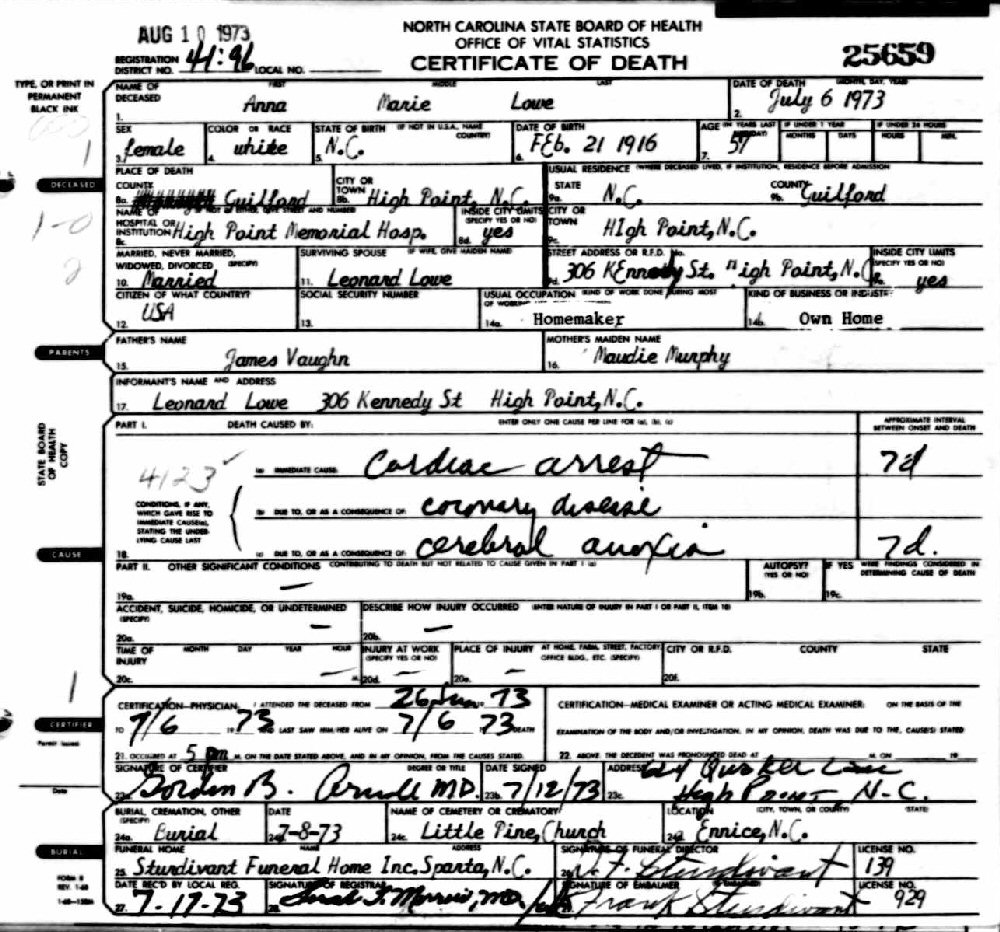 AUG 10 1973
NORTH CAROLINA STATE BOARD OF HEALTH
OFFICE OF VITAL STATISTICS
CERTIFICATE OF DEATH
25659
REGISTRATION DISTRICT NO. 41-96 LOCAL NO.
TYPE, OR PRINT IN PERMANENT BLACK INK
NAME OF DECEASED FIRST MIDDLE LAST DATE OF DEATH (MONTH, DAY, YEAR)
1. Anna Marie Lowe 2. July 6 1973
SEX COLOR OR RACE STATE OF BIRTH (IF NOT IN U.S.A., NAME COUNTRY) DATE OF BIRTH AGE (IN YEARS LAST BIRTHDAY) IF UNDER 1 YEAR MONTHS DAYS IF UNDER 24 HOURS HOURS MIN.
3. female 4. white 5. N.C. 6. FEb. 21 1916 7. 57
DECEASED
PLACE OF DEATH USUAL RESIDENCE (WHERE DECEASED LIVED, IF INSTITUTION, RESIDENCE BEFORE ADMISSION)
COUNTY 8a. Guilford CITY OR TOWN 8b. High Point, N.C. STATE 9a. N.C. COUNTY 9b. Guilford
NAME OF HOSPITAL OR INSTITUTION (IF NOT IN EITHER, GIVE STREET AND NUMBER) 8c. High Point Memorial Hosp. INSIDE CITY LIMITS (SPECIFY YES OR NO) 8d. yes CITY OR TOWN 9c. HIgh Point, N.C.
MARRIED, NEVER MARRIED, WIDOWED, DIVORCED (SPECIFY) 10. Married SURVIVING SPOUSE (IF WIFE, GIVE MAIDEN NAME) 11. Leonard Lowe STREET ADDRESS OR R.F.D. No. 9d. 306 KEnnedy St. High Point, N.C. INSIDE CITY LIMITS (SPECIFY YES OR NO) 9e. yes
CITIZEN OF WHAT COUNTRY? 12. USA SOCIAL SECURITY NUMBER 13. USUAL OCCUPATION (KIND OF WORK DONE DURING MOST OF WORKING 14a. Homemaker KIND OF BUSINESS OR INDUSTRY 14b. Own Home
PARENTS
FATHER'S NAME 15. James Vaughn MOTHER'S MAIDEN NAME 16. Maudie Murphy
INFORMANT'S NAME AND ADDRESS
17. Leonard Lowe 306 Kennedy St High Point, N.C.
STATE BOARD OF HEALTH COPY
PART I. DEATH CAUSED BY: ENTER ONLY ONE CAUSE PER LINE FOR (a), (b), (c) APPROXIMATE INTERVAL BETWEEN ONSET AND DEATH
4123
(a) IMMEDIATE CAUSE Cardiac arrest 7d
CONDITIONS, IF ANY, WHICH GAVE RISE TO IMMEDIATE CAUSE(a), STATING THE UNDERLYING CAUSE LAST
(b) DUE TO, OR AS A CONSEQUENCE OF: coronary disease
CAUSE
18. (c) DUE TO, OR AS A CONSEQUENCE OF: cerebral anoxia 7d.
PART II. OTHER SIGNIFICANT CONDITIONS CONTRIBUTING TO DEATH BUT NOT RELATED TO CAUSE GIVEN IN PART I (a) AUTOPSY? (YES OR NO) IF YES WERE FINDINGS CONSIDERED IN DETERMINING CAUSE OF DEATH
19a. — 19b. 19c.
ACCIDENT, SUICIDE, HOMICIDE, OR UNDETERMINED (SPECIFY) DESCRIBE HOW INJURY OCCURRED (ENTER NATURE OF INJURY IN PART I OR PART II, ITEM 18)
20a. — 20b. —
TIME OF INJURY MONTH DAY YEAR HOUR INJURY AT WORK (SPECIFY YES OR NO) PLACE OF INJURY AT HOME, FARM, STREET, FACTORY, OFFICE BLDG., ETC. (SPECIFY) CITY OR R.F.D. COUNTY STATE
20c. 20d. 20e. 20f.
CERTIFIER
CERTIFICATION—PHYSICIAN: I ATTENDED THE DECEASED FROM 26 Jun 73
TO 7/6 1973 AND LAST SAW HIM/HER ALIVE ON 7/6 73 DEATH
21. OCCURRED AT 5 pm M. ON THE DATE STATED ABOVE, AND IN MY OPINION, FROM THE CAUSES STATED.
CERTIFICATION—MEDICAL EXAMINER OR ACTING MEDICAL EXAMINER: ON THE BASIS OF THE
EXAMINATION OF THE BODY AND/OR INVESTIGATION, IN MY OPINION, DEATH WAS DUE TO THE CAUSE(S) STATED
22. ABOVE. THE DECEDENT WAS PRONOUNCED DEAD AT M. ON 19
SIGNATURE OF CERTIFIER DEGREE OR TITLE DATE SIGNED ADDRESS
23a. Gordon B. MD. 23b. 7/12/73 23c. 624 Quaker Lane
High Point N-C.
BURIAL, CREMATION, OTHER (SPECIFY) DATE NAME OF CEMETERY OR CREMATORY LOCATION (CITY, TOWN, OR COUNTY) STATE
24a. Burial 24b. 7-8-73 24c. Little Pine, Church 24d. Ennice, N.C.
BURIAL
FUNERAL HOME NAME ADDRESS SIGNATURE OF FUNERAL DIRECTOR LICENSE NO.
25. Sturdivant Funeral Home Inc. Sparta, N.C. Sturdivant 139
FORM 8
REV. 1-68
DATE REC'D BY LOCAL REG. SIGNATURE OF REGISTRAR SIGNATURE OF EMBALMER LICENSE NO.
27. 7-17-73 28. Sarah T. Morrow, MD. Frank Sturdivant 929